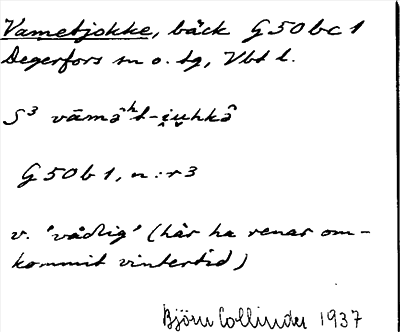 Vametjokke, bäck G50bc1
Degerfors sn o. tg, Vbt l.
S³ vāməʰt-i̯u̯hkə̑
G50b1, n:r3
v. 'vådlig' (här ha renar om-
kommit vintertid)
Björn Collinder 1937